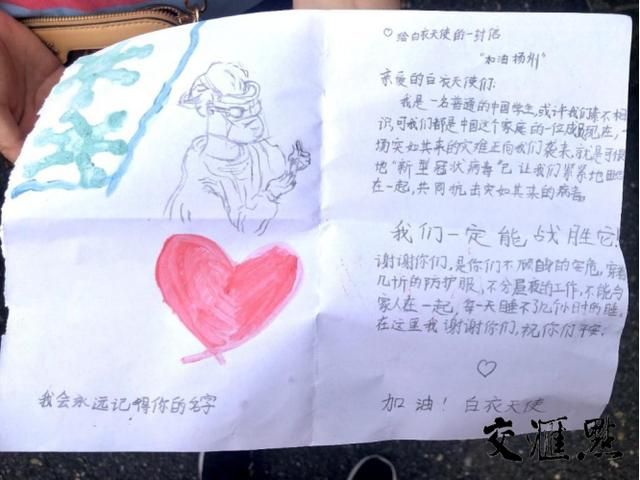 ♡ 给白衣天使的一封信
"加油 扬州"
亲爱的白衣天使们:
我是一名普通的中国学生,或许我们素不相
识,可我们都是中国这个家庭的一位成员,现在,一
场突如其来的灾难正向我们袭来,就是可恨
地"新型冠状病毒"它让我们紧紧地团
在一起,共同抗击突如其来的病毒。
我们一定能战胜它!
谢谢你们,是你们不顾自身的安危,穿着
几斤的防护服,不分昼夜的工作,不能与
家人在一起,每一天睡不了几个小时的睡。
在这里我谢谢你们,祝你们平安!
♡
加油!白衣天使
我会永远记得你的名字
交汇点